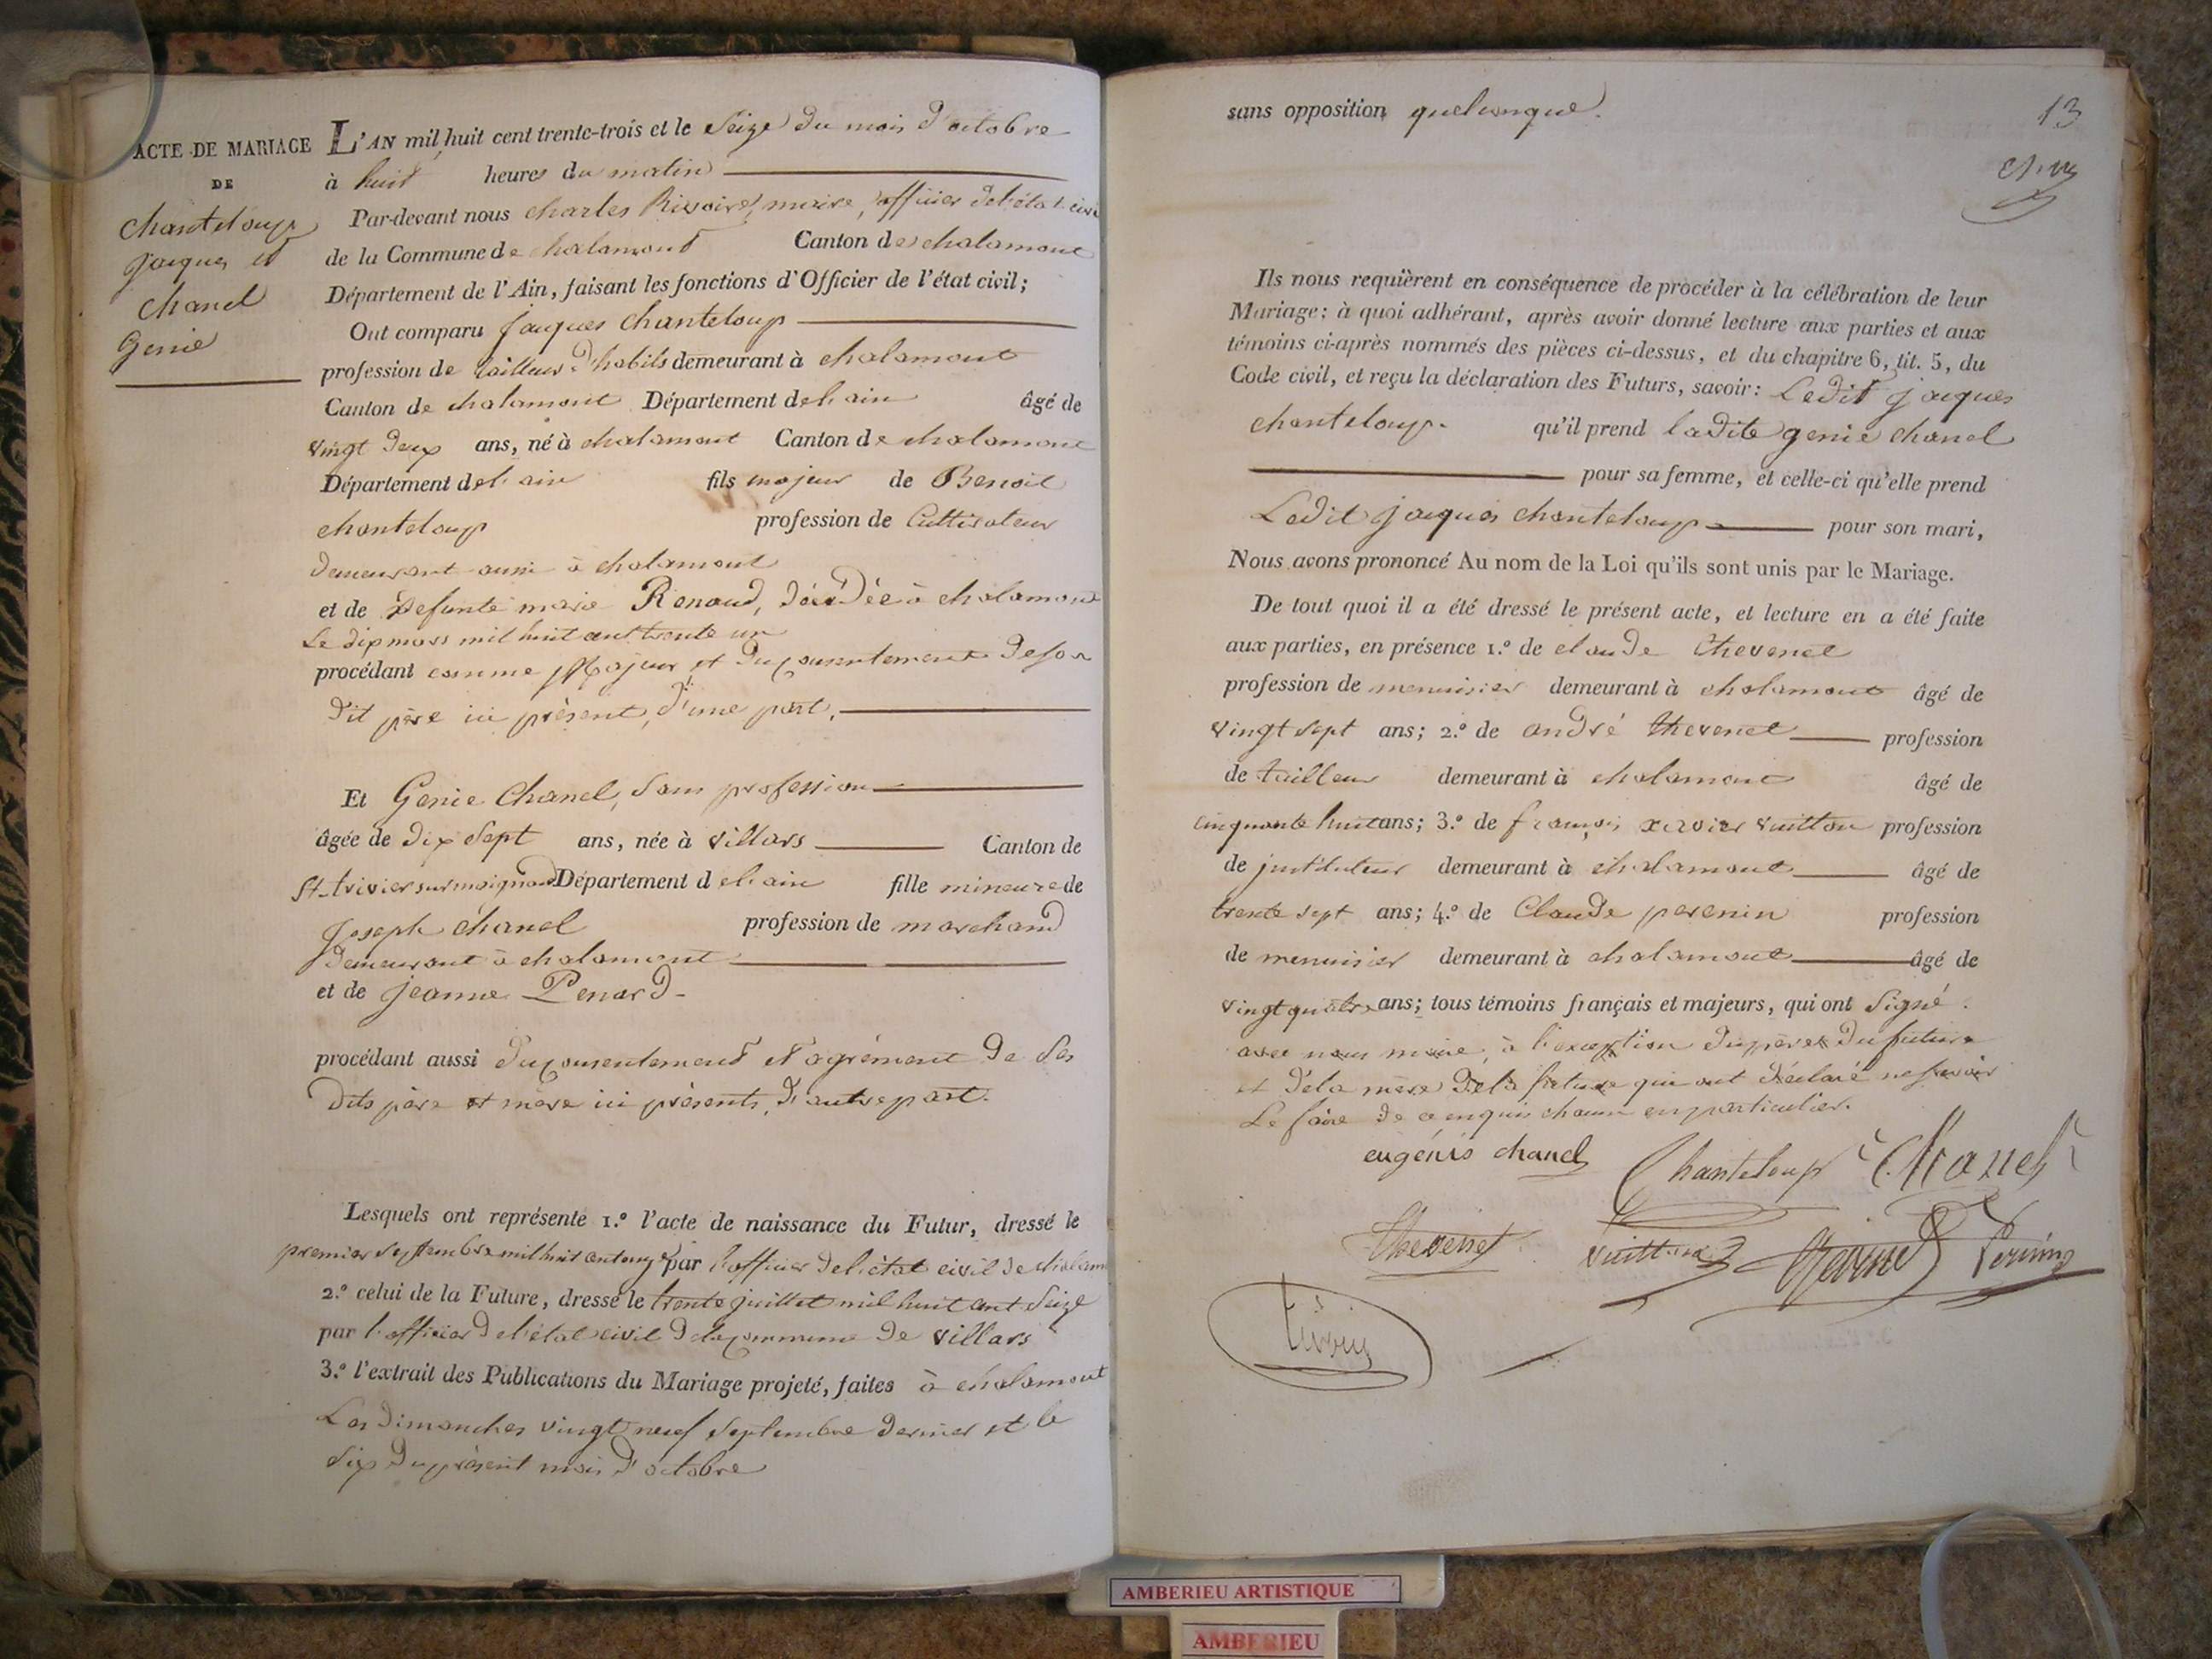 ACTE DE MARIAGE
DE
Chanteloup
Jacques et
Chanel
Genie
L'AN mil huit cent trente-trois et le Seize du mois d'octobre
à huit heures du matin
Par-devant nous charles Rivoire, maire, officier de l'état civi
de la Commune de chalamont Canton de chalamont
Département de l'Ain, faisant les fonctions d'Officier de l'état civil;
Ont comparu Jacques Chanteloup
profession de tailleur d'habits demeurant à chalamont
Canton de chalamont Département de l'ain âgé de
vingt deux ans, né à chalamont Canton de chalamont
Département de l'ain fils majeur de Benoit
chanteloup profession de Cultivateur
demeurant aussi à chalamont
et de defunte marie Renaud, décédée à chalamont
Le dix mars mil huit cent trente un
procédant comme Majeur et du consentement de son
dit père ici présent, d'une part,
Et Genie Chanel, Sans profession
âgée de dix sept ans, née à villars Canton de
St-trivier sur moignand Département de l'ain fille mineure de
Joseph Chanel profession de marchand
demeurant à chalamont
et de Jeanne Penard
procédant aussi du consentement et agrément de ses
dits père et mère ici présents, d'autre part.
Lesquels ont représenté 1.º l'acte de naissance du Futur, dressé le
premier septembre mil huit cent onze par l'officier de l'état civil de chalam
2.º celui de la Future, dressé le trente juillet mil huit cent seize
par l'officier de l'état civil de la commune de villars
3.º l'extrait des Publications du Mariage projeté, faites à chalamont
Les dimanches vingt neuf septembre dernier et le
six du présent mois d'octobre
sans opposition quelconque.
13
Ils nous requièrent en conséquence de procéder à la célébration de leur
Mariage; à quoi adhérant, après avoir donné lecture aux parties et aux
témoins ci-après nommés des pièces ci-dessus, et du chapitre 6, tit. 5, du
Code civil, et reçu la déclaration des Futurs, savoir: Ledit jacques
chanteloup. qu'il prend ladite genie chanel
pour sa femme, et celle-ci qu'elle prend
Ledit jacques chanteloup pour son mari,
Nous avons prononcé Au nom de la Loi qu'ils sont unis par le Mariage.
De tout quoi il a été dressé le présent acte, et lecture en a été faite
aux parties, en présence 1.º de claude thevenet
profession de menuisier demeurant à chalamont âgé de
vingt sept ans; 2.º de andré thevenet profession
de tailleur demeurant à chalamont âgé de
cinquante huit ans; 3.º de françois xavier vuitton profession
de instituteur demeurant à chalamont âgé de
trente sept ans; 4.º de Claude perenin profession
de menuisier demeurant à chalamont âgé de
vingt quatre ans; tous témoins français et majeurs, qui ont Signé
avec nous maire, à l'exception du père du future
et de la mère de la future qui ont déclaré ne savoir
Le faire de ce enquis chacun en particulier.
eugénie chanel Chanteloup Chanel
thevenet vuitton Perenin
AMBERIEU ARTISTIQUE
AMBERIEU